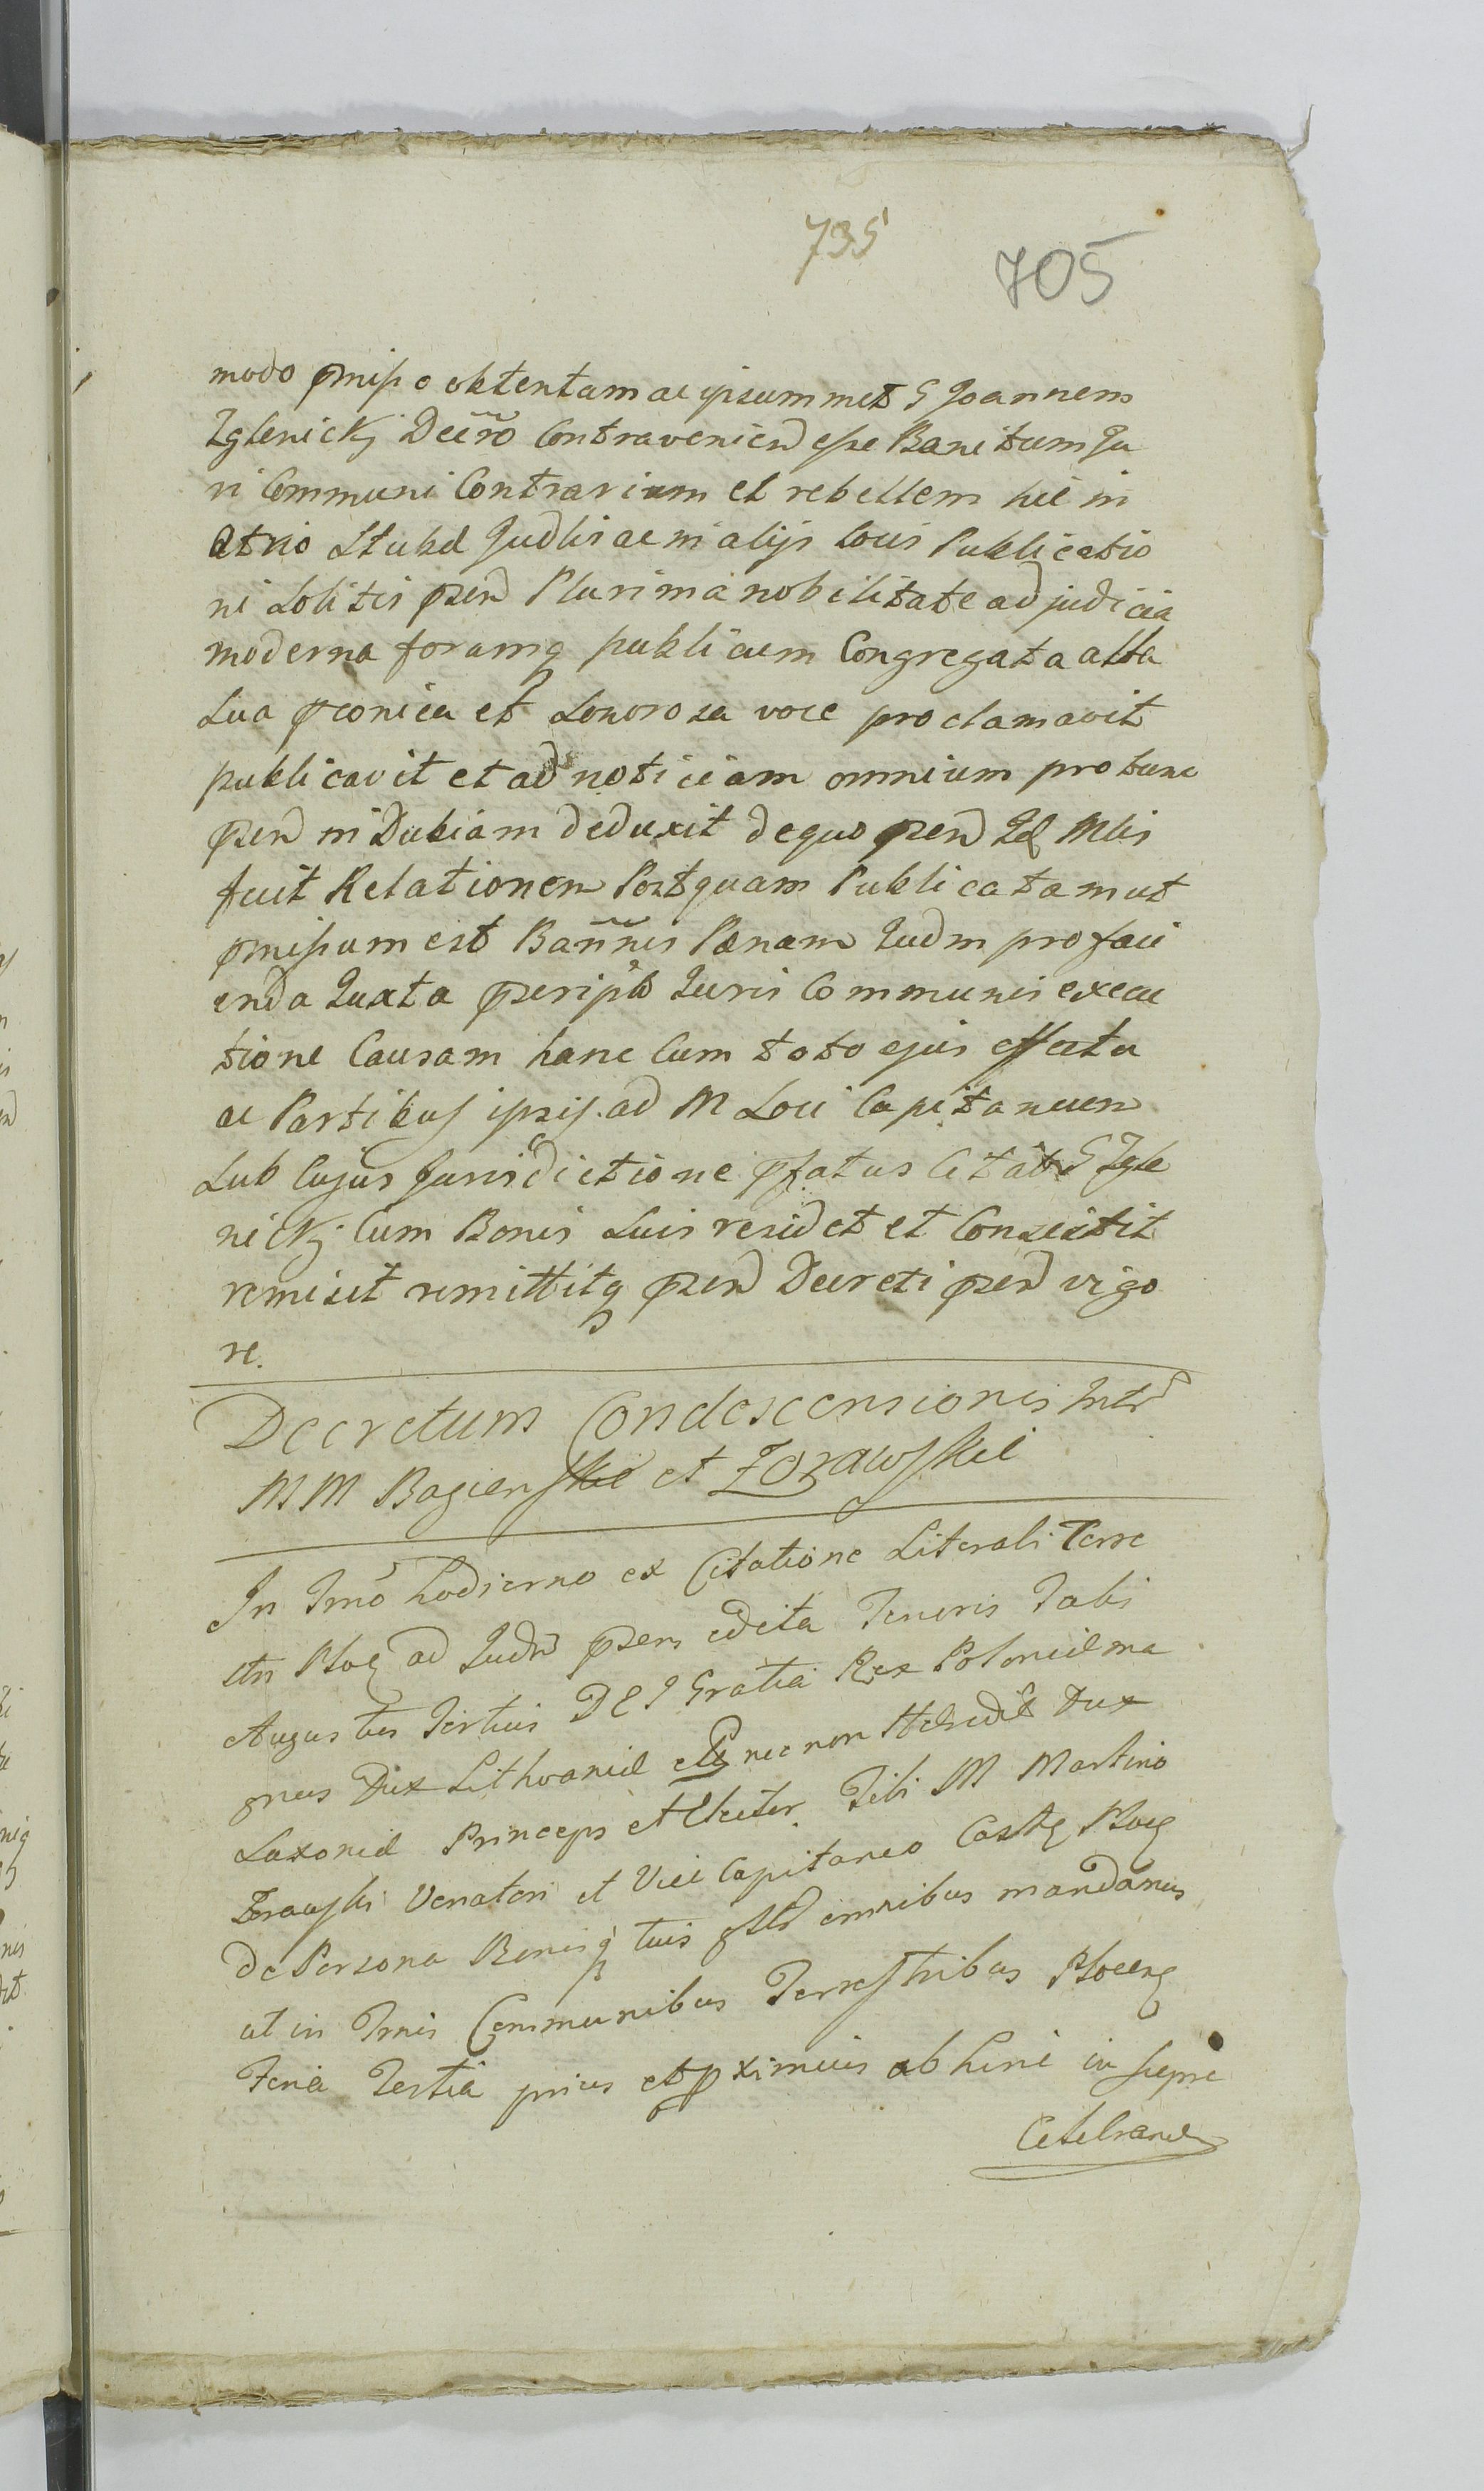 735
705
modo pmiſſo obtentam ac ipsummet G Joannem
Iglenickj Decro Contravenien eſſe Banitum Ju
ri Communi Contrarium et rebellem hic in
Atrio Stubæ Judlis ac in alijs Locis Publicatio
ni Solitis pzen Plurima nobilitate ad judicia
moderna forumq publicum Congregata alta
Sua pconica et Sonorosa voce proclamavit
publicavit et ad noticiam omnium pro tunc
pzen in Dubiam deduxit de quo pzen Mlis
fecit Relationem Postquam Publicatam ut
pmiſſum est Bannis Pænam Judm pro faci
enda Juxta pzeripto Juris Communis execu
tione Causam hanc Cum toto ejus effectu
ac Partibus ipsis ad M Loci Capitaneum
Sub Cujus Jurisdictione pfatus Citats G Igle
nickj Cum Bonis Suis residet et Consistit
remisit remittitq pzen Decreti pzen vigo
re.
Decretum Condescensionis Intr
M M Bagienſkie et Zorawſkie
In Tmo hodierno ex Citatione Literali Terre
stri Ploc ad Judm pzens edita Tenoris Talis
Augustus Tertius DEI Gratia Rex Poloniæ ma
gnus Dux Lithvaniæ etc nec non Hæredit Dux
Saxoniæ Princeps et Elector. Tibi M Martino
Zorawſki Venatori et Vice Capitaneo Castr Ploc
De Persona Bonisq tuis gñlr omnibus mandamus
ut in Tmis Communibus Terreſtribus Plocen
Feria Tertia prius et pximius ab hinc in
Celebrand